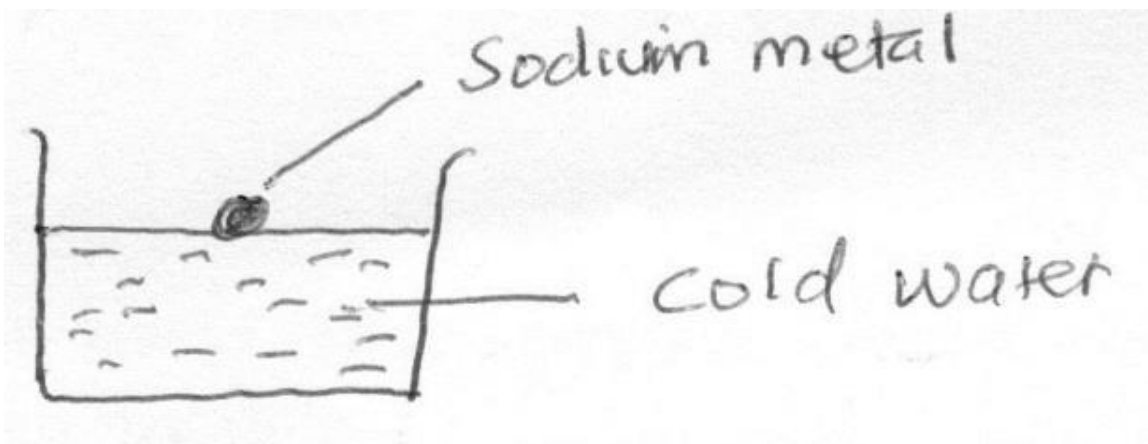 Sodium metal
Cold water